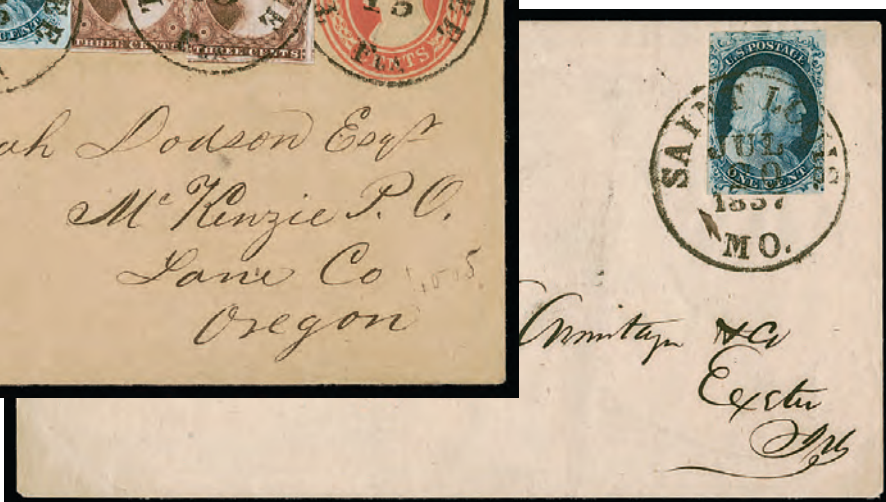 THREE CENTS THREE CENTS
CENTS
15
Fla
Dodson Esqr
Mc Kenzie P. O.
Lane Co
Oregon
U.S. POSTAGE
ONE CENT
SAINT LOUIS
JUL
20
1857
MO.
Armitage & Co
Exeter
Ills